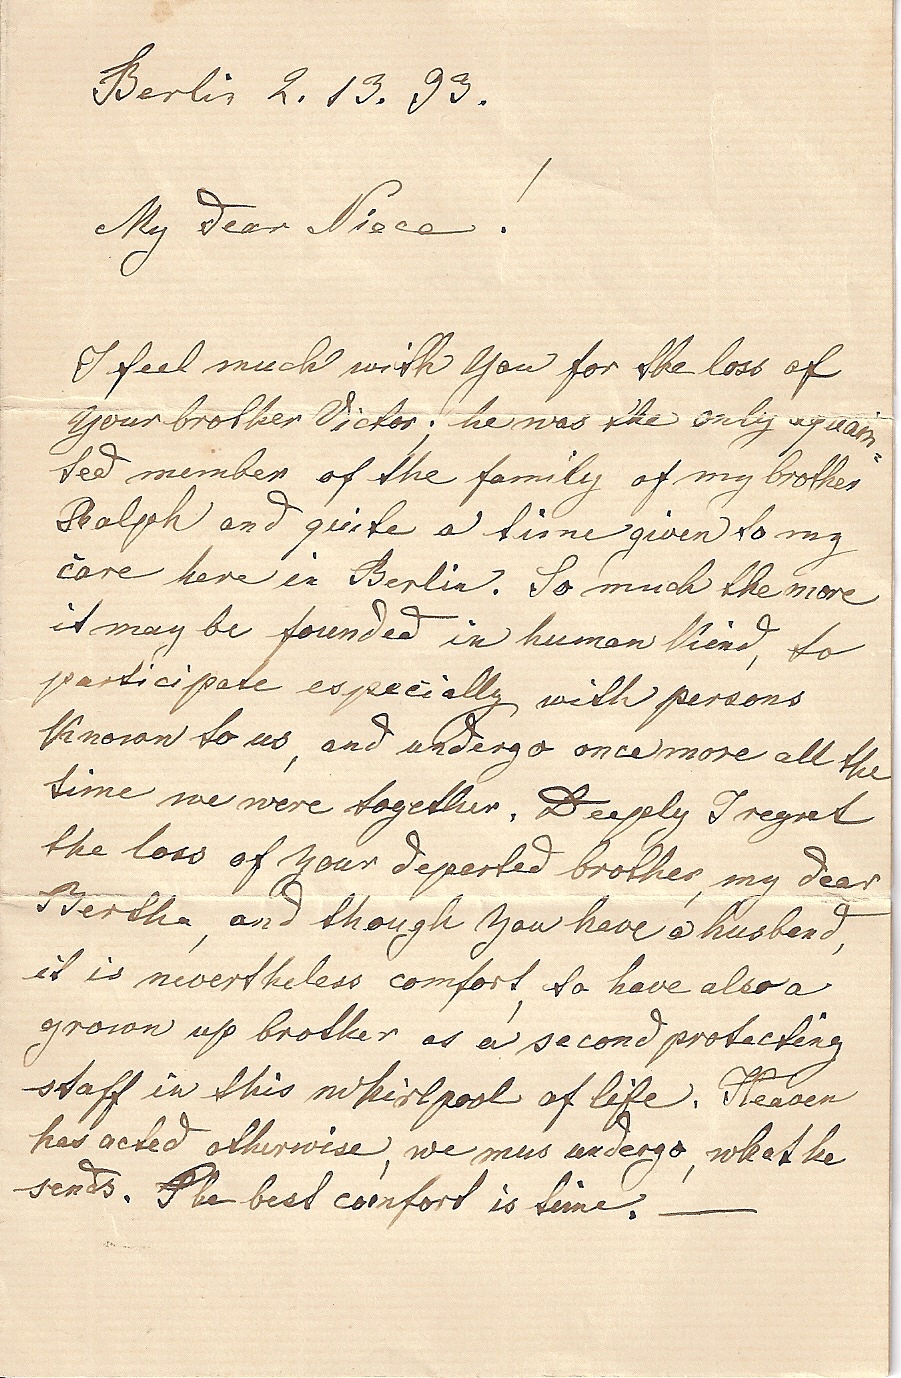 Berlin 2. 13. 93.
My dear Niece!
I feel much with you for the loss of
your brother Victor; he was the only aquain-
ted member of the family of my brother
Ralph and quite a time given to my
care here in Berlin. So much the more
it may be founded in human Kiend, to
participate especially with persons
Known to us, and undergo once more all the
time we were together. Deeply I regret
the loss of your deperted brother, my dear
Bertha, and though you have a husbend,
it is nevertheless comfort, to have also a
grown up brother as a second protecting
staff in this whirlpool of life. Heaven
has acted otherwise, we mus undergo, what he
sends. The best comfort is time. —